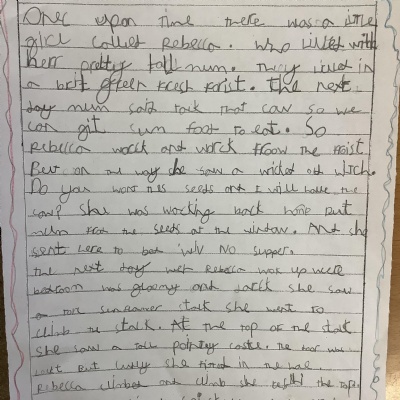 Onec upon Time there was a little
girl called Rebecca. Who lived with
herr pretty tall mum. They lived in
a brit green fresh forist. the next
day mum said talk that cow so we
can git sum foot to eat. So
Rebecca worck and worck froow the forist
But on the way she saw a wicked old witch.
Do you wont this seeds and I will have the
cow? She was working back home but
mum the seeds at the window. And she
sent here to bed wiv No supper.
the next day wen Rebecca wok up were
bedroom was gloomy and darck she saw
a tall sunflower stalk she went to
climb the stalk. At the top of the stalk
she saw a tall pointy castle. the door was
but lucly she in the
Rebecca climbed and climb she the rope.